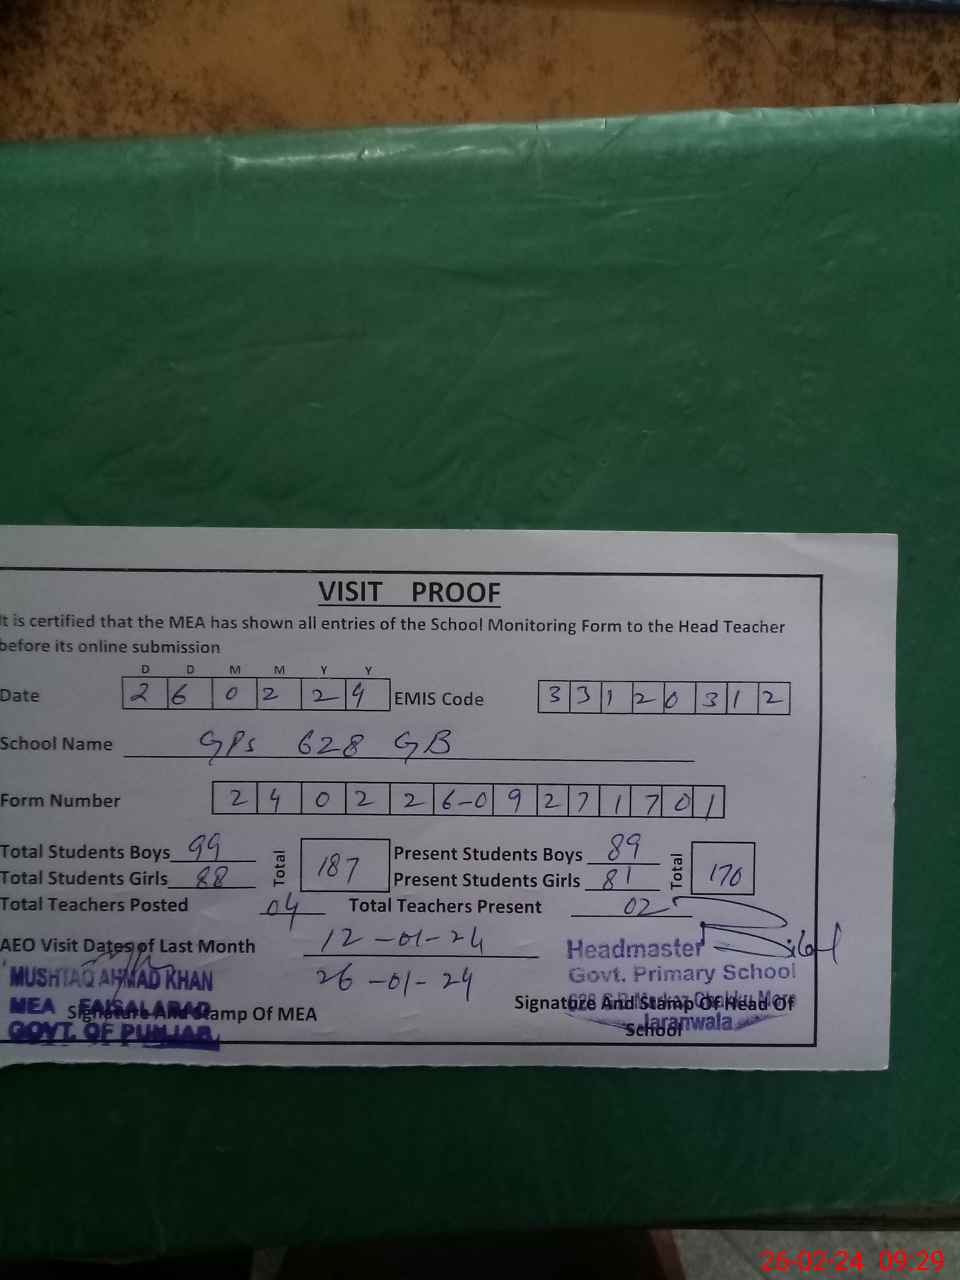 VISIT PROOF
It is certified that the MEA has shown all entries of the School Monitoring Form to the Head Teacher
before its online submission
D D M M Y Y
Date 2 6 0 2 2 4 EMIS Code 3 3 1 2 0 3 1 2
School Name GPS 628 GB
Form Number 2 4 0 2 2 6-0 9 2 7 1 7 0 1
Total Students Boys 99 Total 187 Present Students Boys 89 Total 170
Total Students Girls 88 Present Students Girls 81
Total Teachers Posted 04 Total Teachers Present 02
AEO Visit Dates of Last Month 12-01-24
26-01-24
MUSHTAQ AHMAD KHAN
MEA FAISALABAD
GOVT. OF PUNJAB
Signature And Stamp Of MEA
Headmaster
Govt. Primary School
628 G.B Markaz Chakku More
Jaranwala
Signature And Stamp Of Head Of
School
26-02-24 09:29